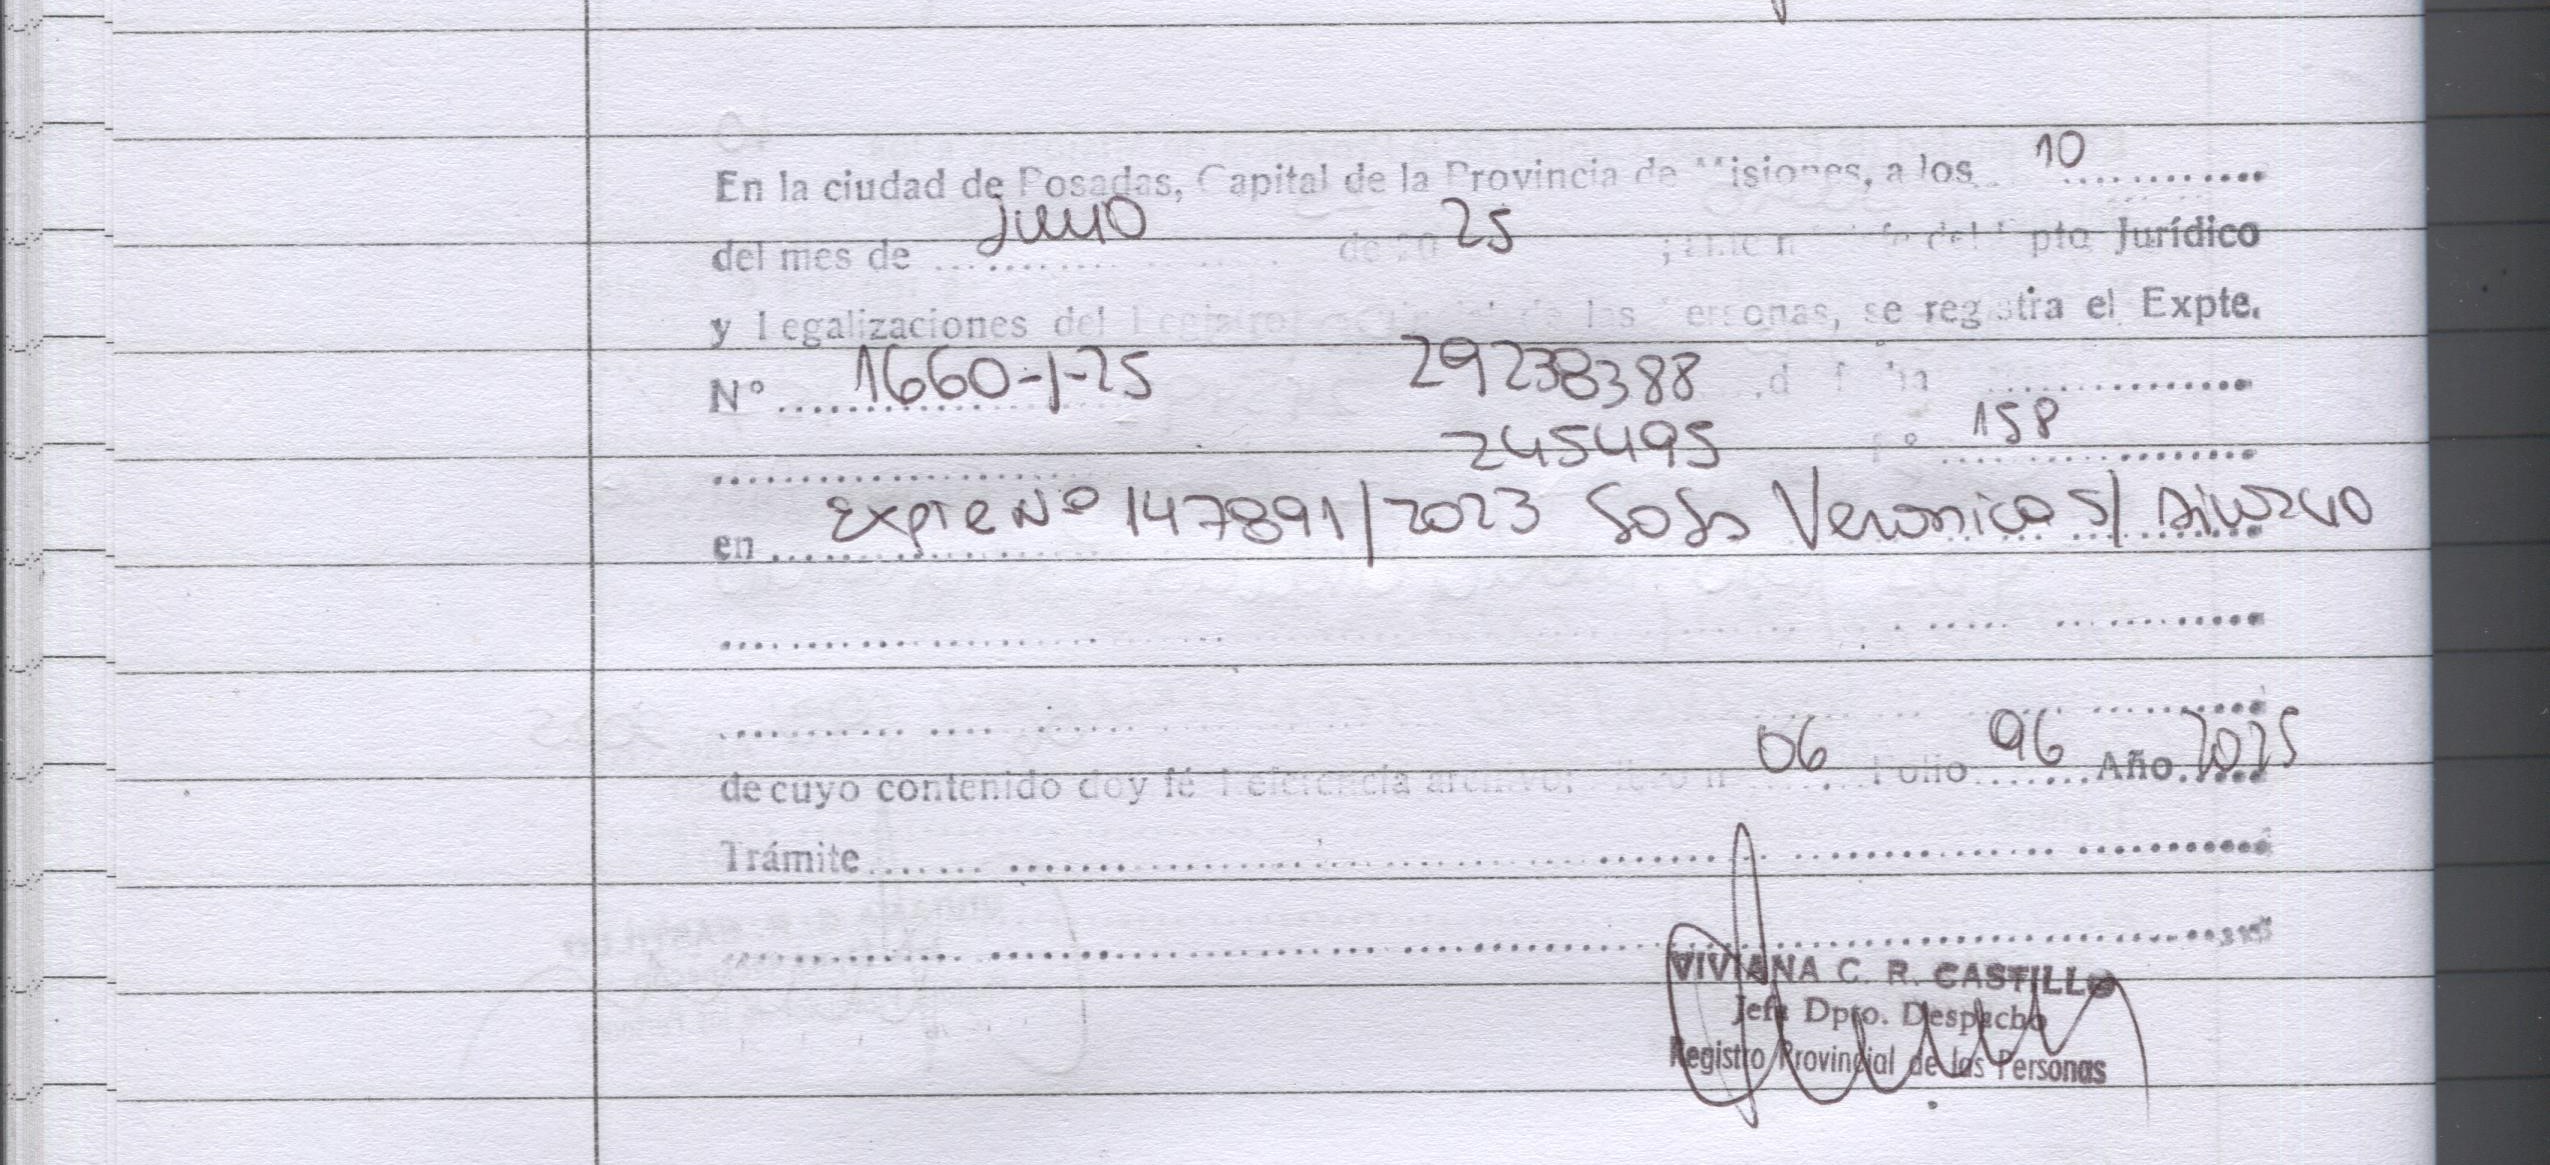 En la ciudad de Posadas, Capital de la Provincia de Misiones, a los 10
del mes de de 20 25 Dpto Jurídico
y Legalizaciones del Registro de las Personas, se registra el Expte.
Nº 1660-J-25 29238388
245495 158
en Expte Nº 147891/2023 Sosa Veronica S/ Divorcio
de cuyo contenido doy fé Referencia archivo: 06 Folio 96 Año 2025
Trámite
VIVIANA C. R. CASTILLO
Jefa Dpto. Despacho
Registro Provincial de las Personas